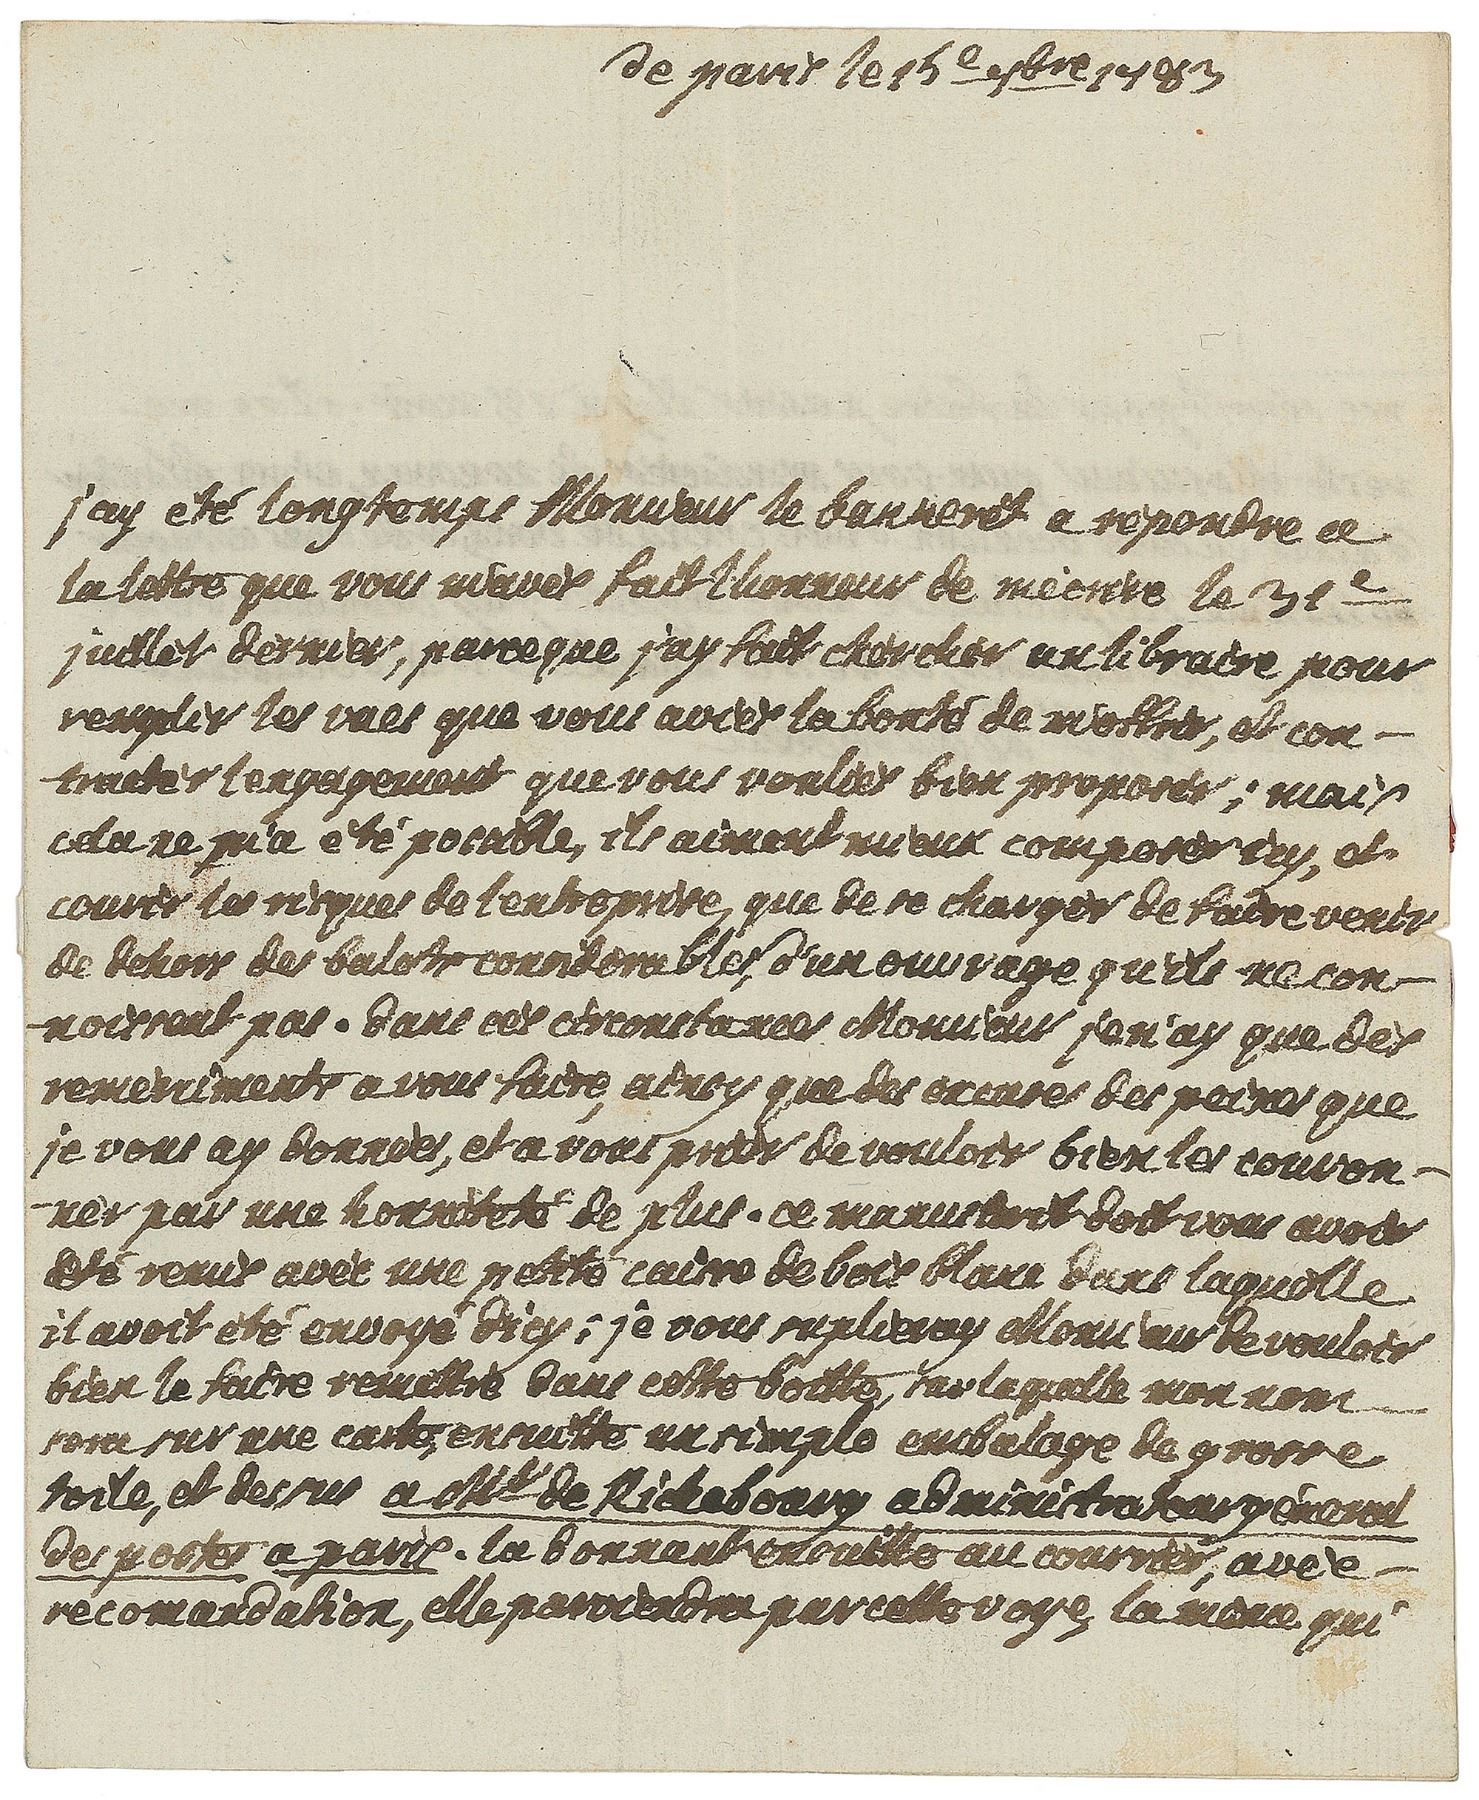 de paris le 15e 7bre 1783
j'ay eté longtemps Monsieur le banneret a repondre a
la lettre que vous m'avés fait lhonneur de mécrire le 31e
juillet dernier, parceque j'ay fait chercher un libraire pour
remplir les vues que vous aviés la bonté de m'offrir, et con-
tracter lengagement que vous vouliés bien proposer; mais
cela ne m'a eté possible, ils aiment mieux composer icy, et
courir les risques de lentreprise, que de se charger de faire venir
de dehors des balots considerables, d'un ouvrage qu'ils ne con-
noissent pas. dans ces circonstances Monsieur je n'ay que des
remerciments a vous faire, ainsy que des excuses des peines que
je vous ay données, et a vous prier de vouloir bien les couron-
-ner par une honnêteté de plus. ce manuscrit doit vous avoir
été remis avec une petite caisse de bois blanc dans laquelle
il avoit été envoyé d'icy; je vous suplieray Monsieur de vouloir
bien le faire remettre dans cette boitte, sur laquelle mon nom
sera sur une carte, ensuitte un simple embalage de grosse
toile, et dessus a Mr de Rickebourg administrateur général
des postes a paris. la donnant ensuitte au courrier, avec
recomandation, elle parviendra par cette voye, la même qui